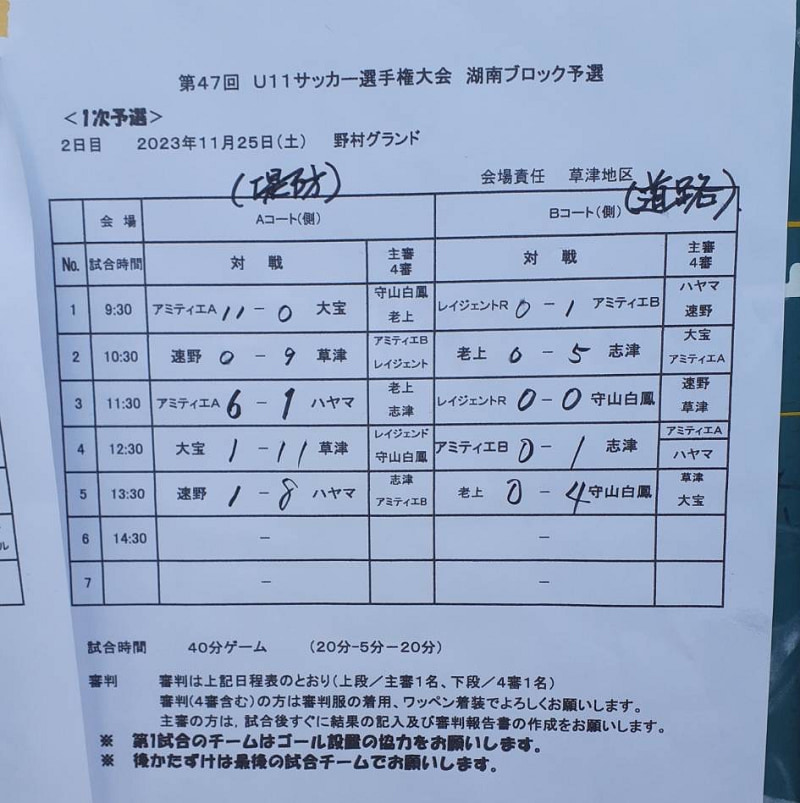 第47回 U11サッカー選手権大会 湖南ブロック予選
<1次予選>
2日目 2023年11月25日(土) 野村グランド
会場責任 草津地区
(堤防) (道路)
会場 Aコート(側) Bコート(側)
No. 試合時間 対戦 主審 4審 対戦 主審 4審
1 9:30 アミティエA 11-0 大宝 守山白鳳 老上 レイジェントR 0-1 アミティエB ハヤマ 速野
2 10:30 速野 0-9 草津 アミティエB レイジェント 老上 0-5 志津 大宝 アミティエA
3 11:30 アミティエA 6-1 ハヤマ 老上 志津 レイジェントR 0-0 守山白鳳 速野 草津
4 12:30 大宝 1-11 草津 レイジェンド 守山白鳳 アミティエB 0-1 志津 アミティエA ハヤマ
5 13:30 速野 1-8 ハヤマ 志津 アミティエB 老上 0-4 守山白鳳 草津 大宝
6 14:30 - -
7 - -
試合時間 40分ゲーム (20分-5分-20分)
審判 審判は上記日程表のとおり(上段/主審1名、下段/4審1名)
審判(4審含む)の方は審判服の着用、ワッペン着装でよろしくお願いします。
主審の方は,試合後すぐに結果の記入及び審判報告書の作成をお願いします。
※ 第1試合のチームはゴール設置の協力をお願いします。
※ 後かたずけは最後の試合チームでお願いします。